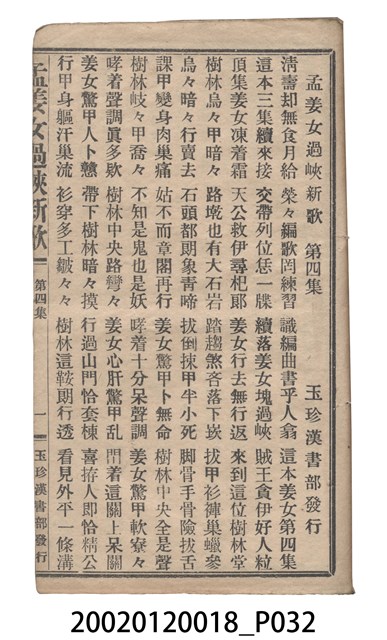 孟姜女過峽新歌　第四集　玉珍漢書部發行
淸壽却無食月給　榮々編歌罔練習　識編曲書乎人翕　這本姜女第四集
這本三集續來接　交帶列位恁一牒　續落姜女塊過峽　賊王貪伊好人粒
頂集姜女凍着霜　天公救伊尋杞郞　姜女行去無行返　來到這位樹林堂
樹林烏々甲暗々　路墘也有大石岩　踏趨煞吝落下崁　拔甲衫褲巢蠟參
烏々暗々行賣去　石頭都朗象靑啼　拔倒揀甲半小死　脚骨手骨險拔舌
課甲變身肉巢痛　姑不而章閣再行　姜女驚甲卜無命　樹林中央全是聲
樹林岐々甲喬々　不知是鬼也是妖　哮着十分呆聲調　姜女驚甲軟寮々
哮着聲調眞多款　樹林中央路彎々　姜女心肝驚甲亂　門着這關上呆關
姜女驚甲人卜戇　帶下樹林暗々摸　行過山門恰套棟　喜揥人即恰精公
行甲身軀汗巢流　衫穿多工皺々々　樹林這鞍朗行透　看見外平一條溝
孟姜女過峽新歌　第四集　一　玉珍漢書部發行
20020120018_P032